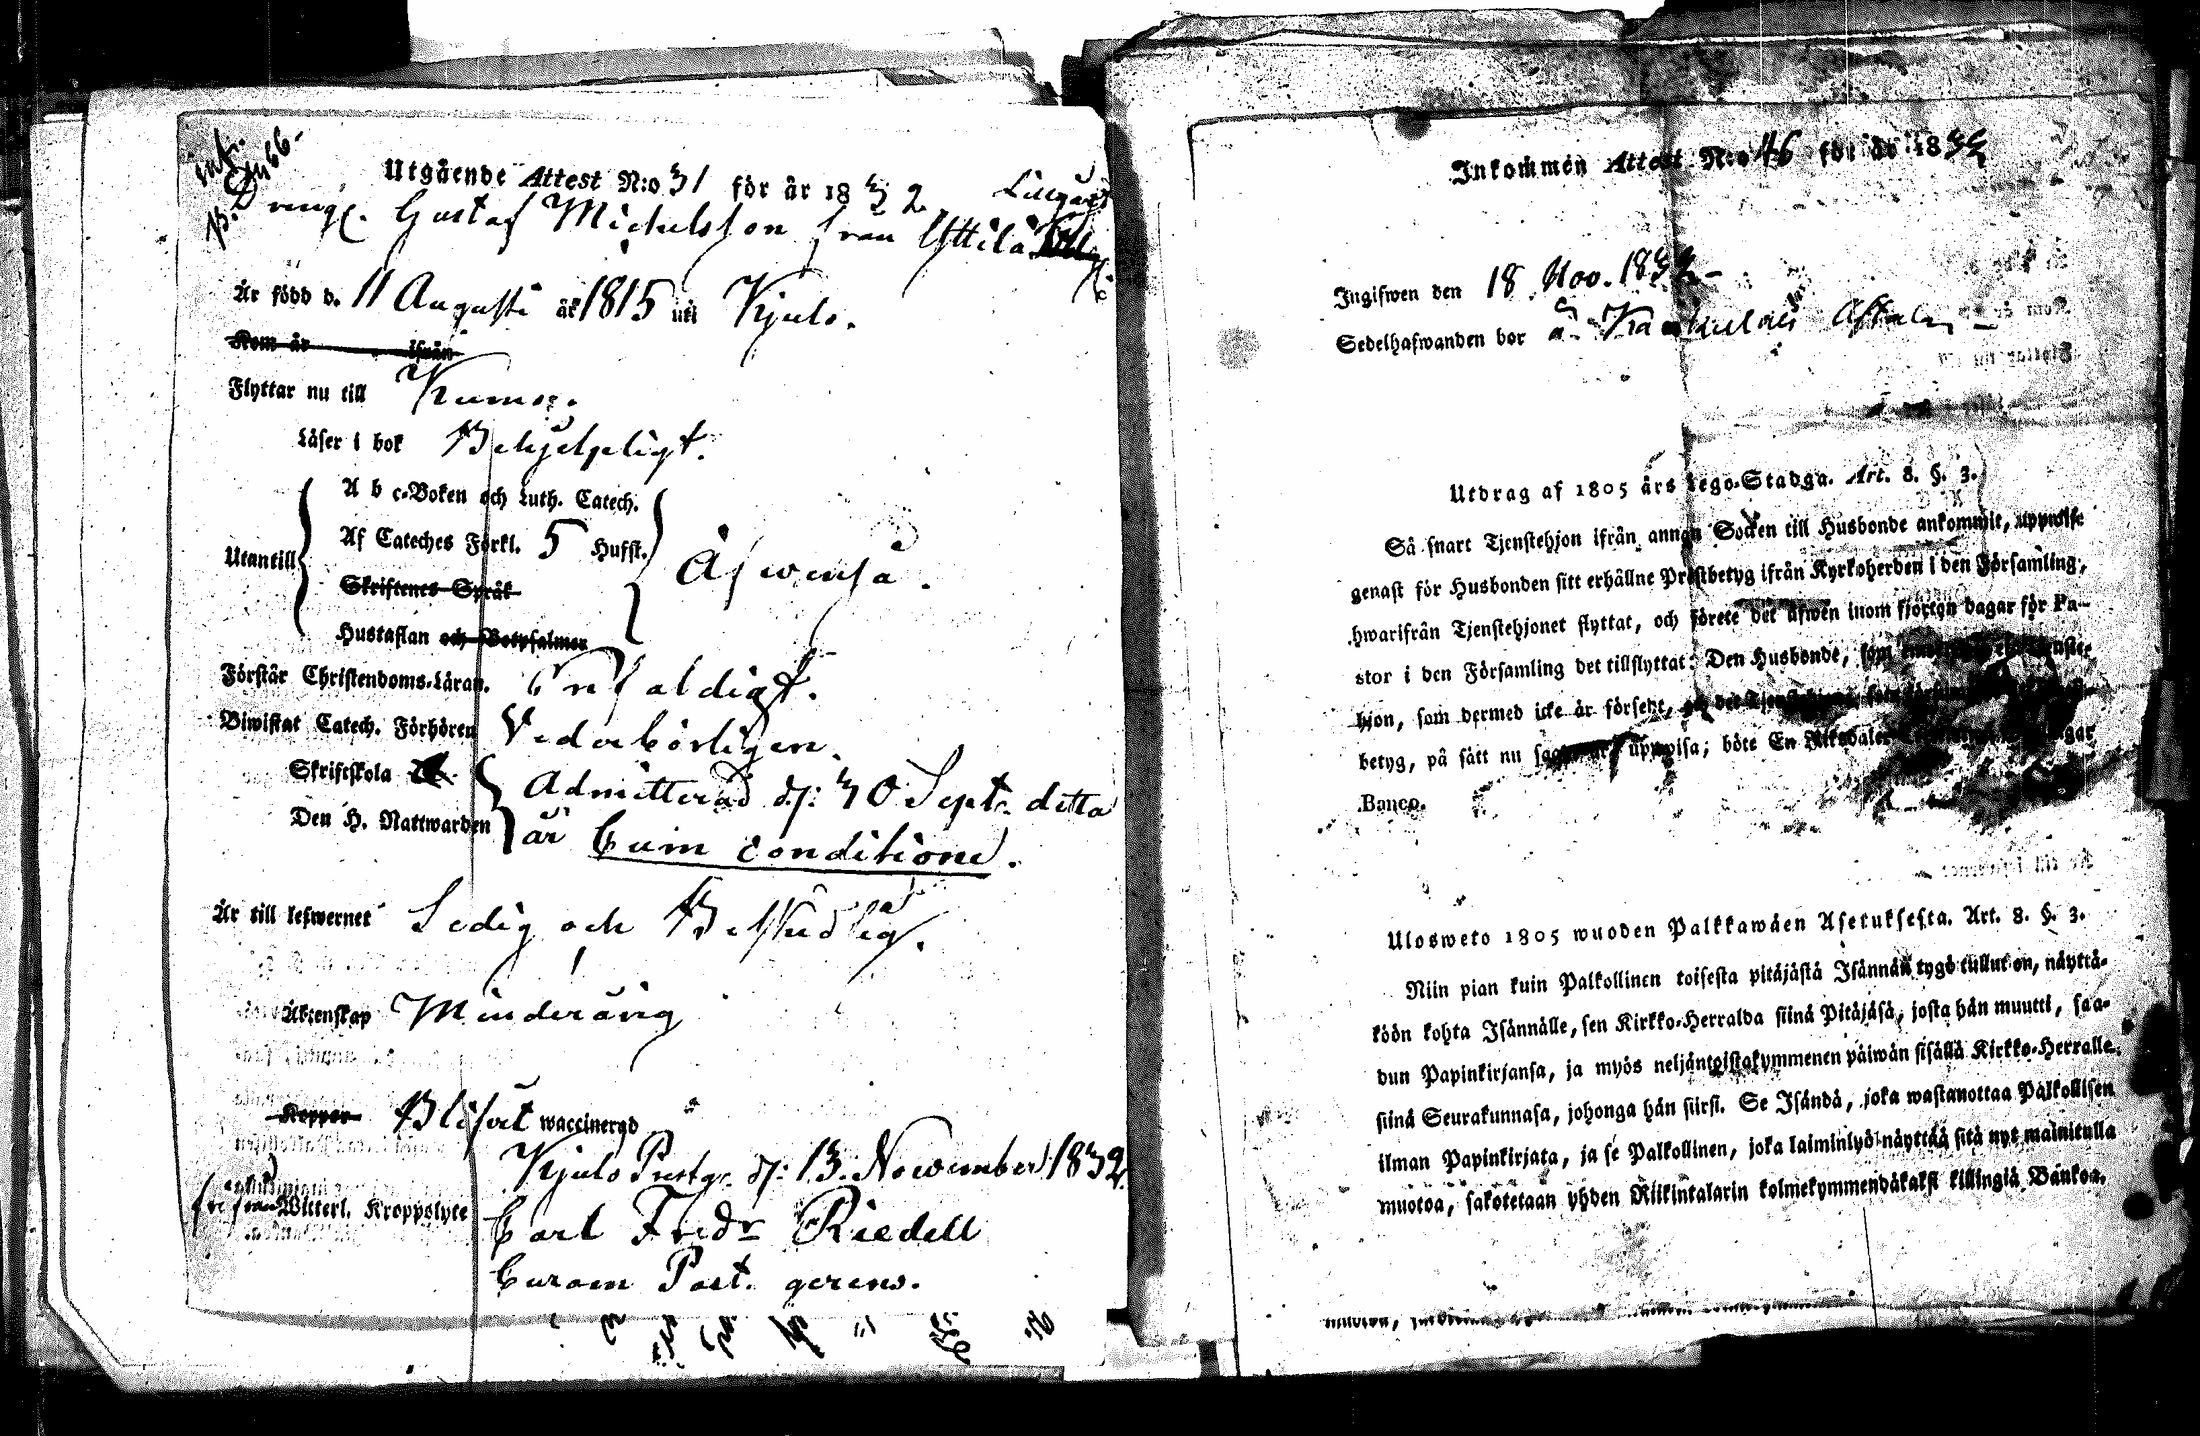 Utgående Attest N:o 31 för år 1832
Dreng. Gustaf Michelsson från Yttilä
Är född d. 11 Augusti år 1815 uti Kjulo.
Kom år ifrån
Flyttar nu till Kumo.
Läser i bok Behjelpligt.
A b c-Boken och Luth. Catech.
Af Cateches Förkl. 5 Hufst.
Utantill Äfwenså.
Skriftenes Språk
Hustaflan och Botpsalmer
Förstår Christendoms-Läran. Enfaldigt.
Biwistat Catech. Förhören Vederbörligen.
Skriftskola Admitterad d: 30 Sept. detta
Den H. Nattwarden år Cum conditione.
Är till lefwernet Ledig och Beskedlig.
Äktenskap Minderårig
Koppor Blifwit waccinerad
Kjulo Prestg. d: 13 November 1832
fri från Witterl. Kroppslyte
Carl Fredr Riedell
Curam Past. gerens.
Inkommen Attest N:o 46 för år 1832
Ingifwen den 18 Nov. 1832
Sedelhafwanden bor å
Utdrag af 1805 års Lego-Stadga. Art. 8. §. 3.
Så snart Tjenstehjon ifrån annan Socken till Husbonde ankommit, uppwise
genast för Husbonden sitt erhållne Prestbetyg ifrån Kyrkoherden i den Församling,
hwarifrån Tjenstehjonet flyttat, och förete det äfwen inom fjorton dagar för Pa-
stor i den Församling det tillflyttat: Den Husbonde, som
hjon, som dermed icke är försedt,
betyg, på sätt nu uppwisa; böte En Riksdaler
Banco.
Ulosweto 1805 wuoden Palkkawäen Asetuksesta. Art. 8. §. 3.
Niin pian kuin Palkollinen toisesta pitäjästä Isännän tygö tullut on, näyttä-
köön kohta Isännälle, sen Kirkko-Herralda siinä Pitäjäsä, josta hän muutti, saa-
dun Papinkirjansa, ja myös neljäntoistakymmenen päiwän sisällä Kirkko-Herralle
siinä Seurakunnasa, johonga hän siirsi. Se Isändä, joka wastanottaa Palkollisen
ilman Papinkirjata, ja se Palkollinen, joka laiminlyö näyttää sitä nyt mainitulla
muotoa, sakotetaan yhden Riikintalarin kolmekymmendäkaksi killingiä Bankoa.